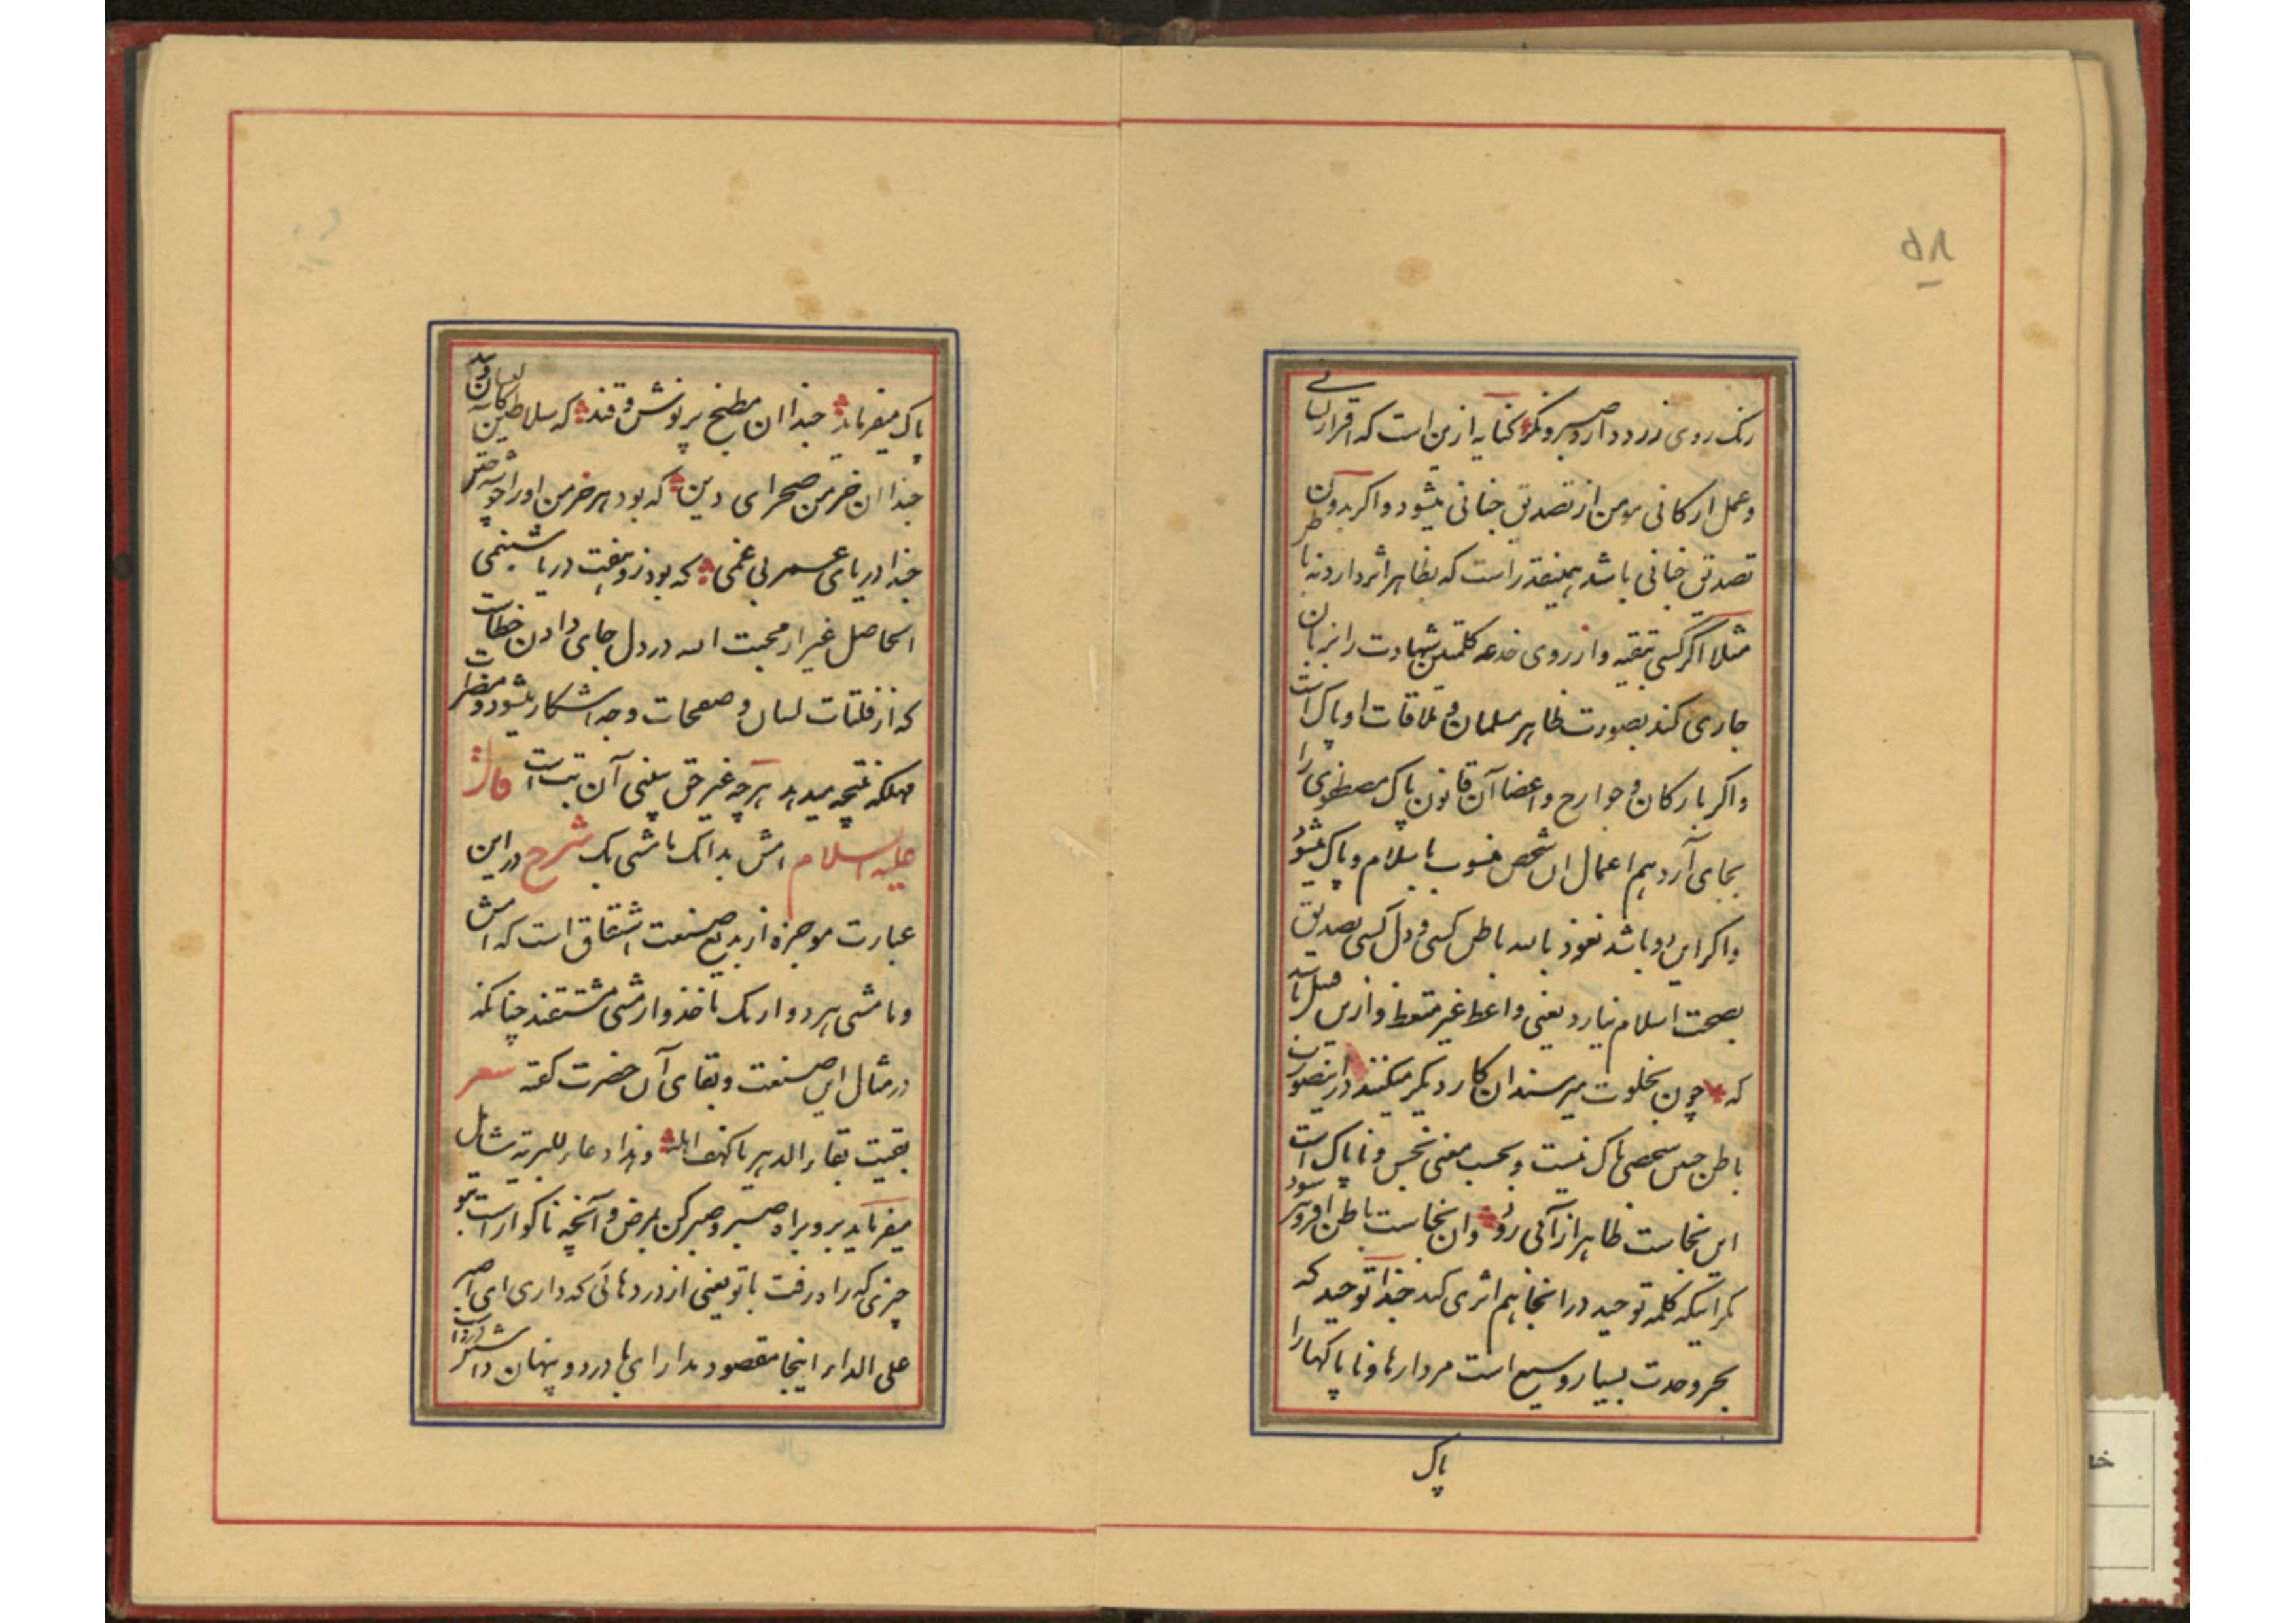 ۵۸
رنک روی زرد دارد صبر و نکر کنایه ازین است که اقرار لسانی
و عمل ارکانی مومن از تصدیق جنانی میشود و اکر بدون
تصدیق جنانی باشد همینقدر است که بظاهر اثر دارد نه باطن
مثلا اکر کسی بتقیه و از روی خدعه کلمتین شهادت را بزبان
جاری کند بصورت ظاهر مسلمان و ملاقات او پاک است
و اکر بارکان و جوارح و اعضا آن قانون پاک مصطفوی را
بجای آرد هم اعمال ان شخص منسوب باسلام و پاک میشود
و اکر این دو باشد نعوذ بالله باطن کسی و دل کسی تصدیق
بصحت اسلام نیارد یعنی واعظ غیر متعظ و ازین قبیل باشد
که چون بخلوت میرسند ان کار دیکر میکنند در اینصورت
باطن چنین شخصی پاک نیست و بحسب معنی نجس و ناپاک است
این نجاست ظاهر از آبی رود وان نجاست باطن افزون شود
مکر اینکه کلمه توحید در انجا هم اثری کند حبذا توحید که
بحر وحدت بسیار وسیع است مردارها و ناپاکها را
پاک
پاک میفرماید حبذا ان مطبخ پر نوش و قند که سلاطین کاسه لیسان ویند
حبذا ان خرمن صحرای دین که بود هر خرمن او را خوشه چین
حبذا دریای عمر بی غمی که بود زو هفت دریا شبنمی
الحاصل غیر از محبت الله در دل جای دادن خطاست
که از فلتات لسان و صفحات وجه اشکار میشود و مضرات
مهلکه نتیجه میدهد هر چه غیر حق ببینی آن بت است قال
علیه السلام امش بدائک ما مشی بک شرح در این
عبارت موجزه از بدیع صنعت اشتقاق است که امش
و ما مشی هر دو از یک ماخذ و از مشی مشتقند چنانکه
در مثال این صنعت و بقای آن حضرت کفته شعر
بقیت بقاء الدهر یا کهف اهله و هذا دعاء للبریة شامل
میفرماید برو براه صبر و صبر کن بمرض و آنچه ناکوار است بتو
چیزی که راه رفت با تو یعنی از دردهائی که داری ای صبر
علی الداء اینجا مقصود مدارای با درد و پنهان داشتن